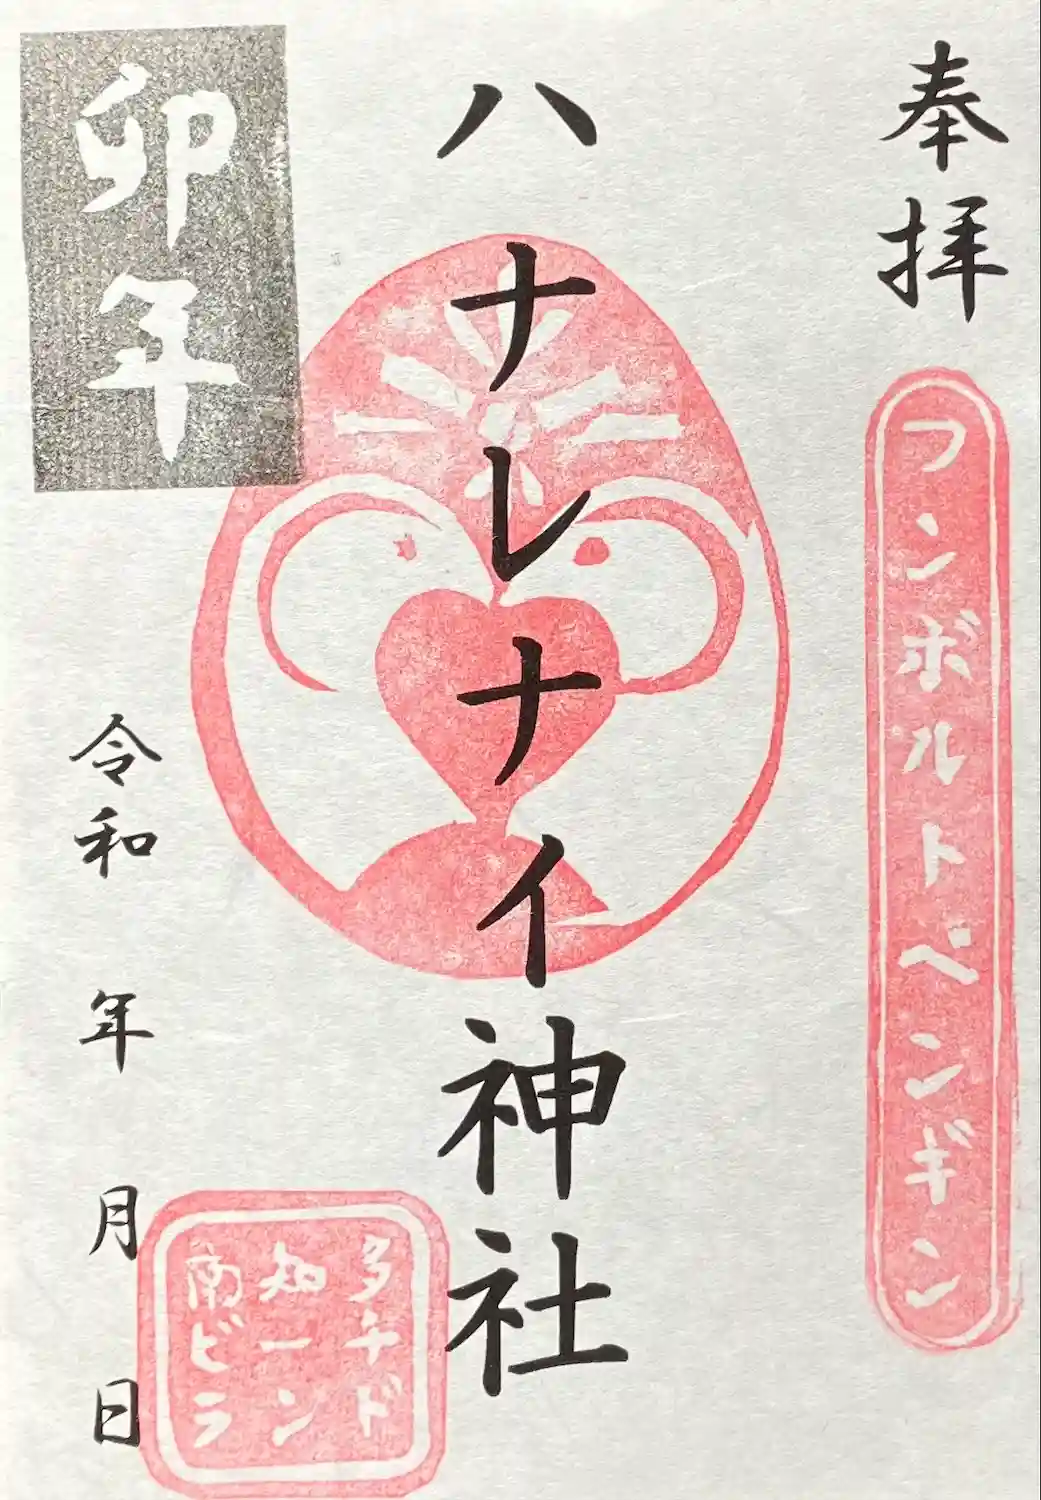 奉拝
フンボルトペンギン
ハナレナイ神社
卯年
令和 年 月 日
南知多
ビーチ
ランド